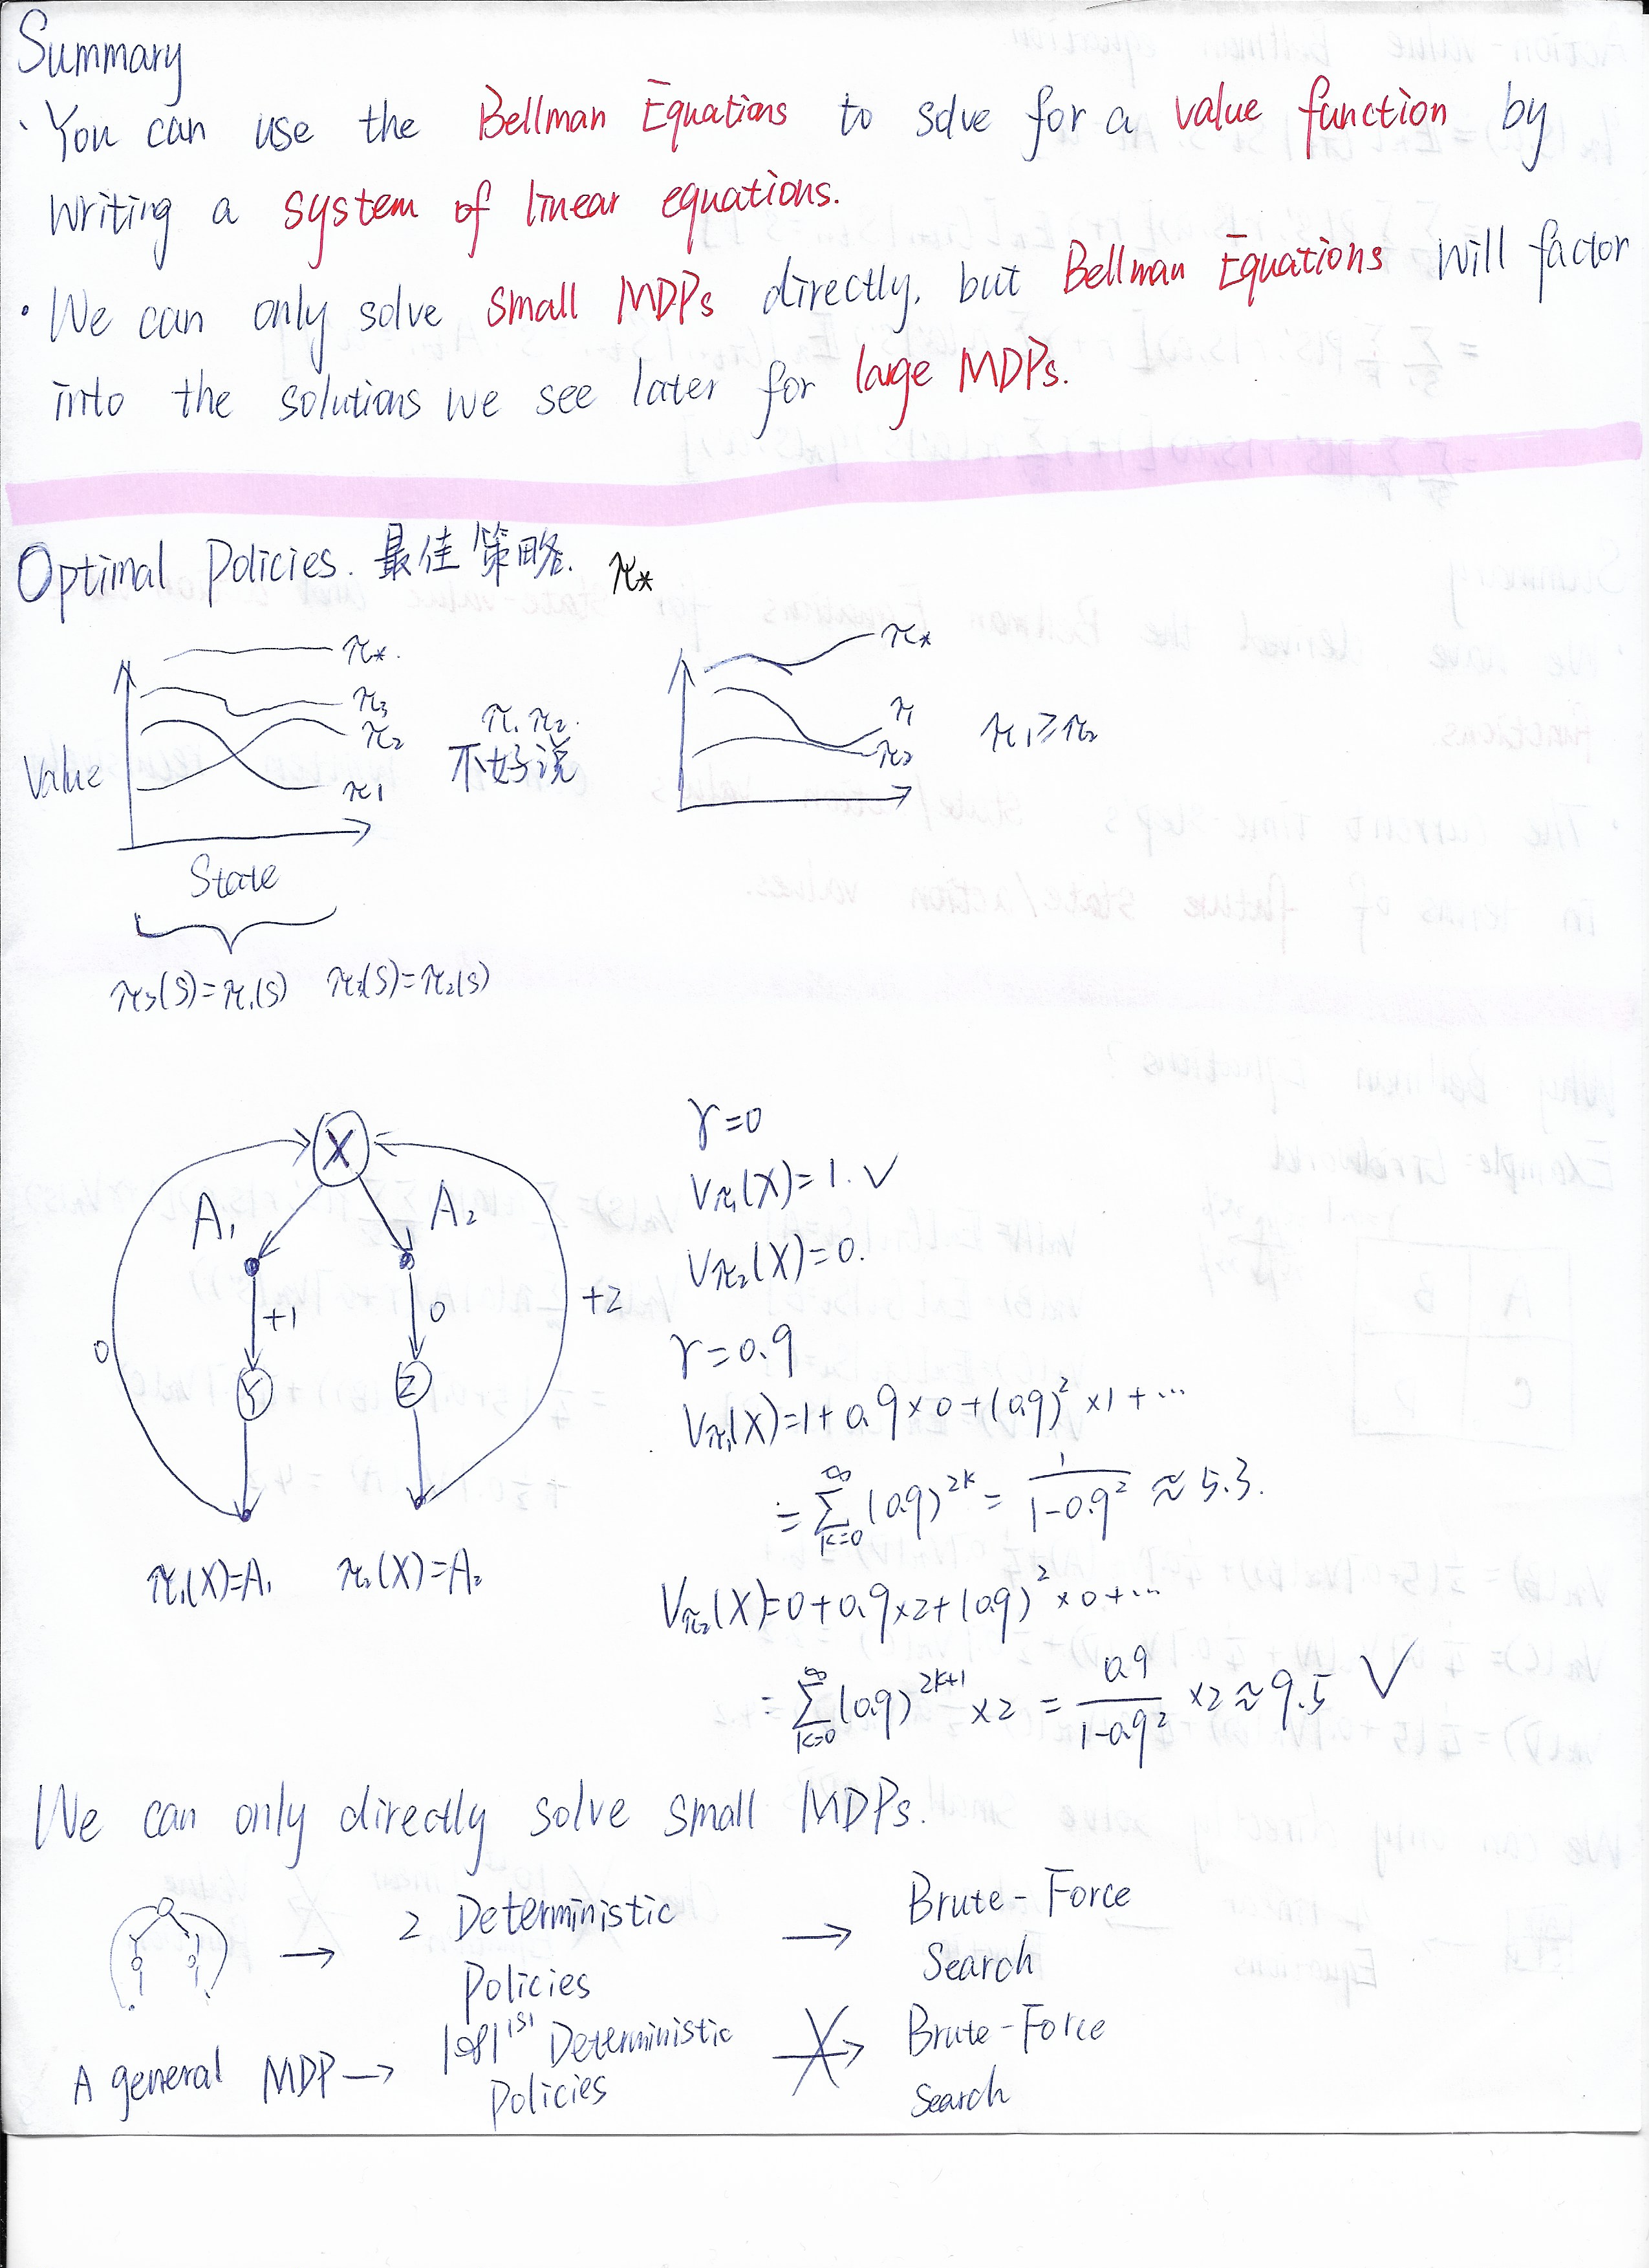 Summary
· You can use the Bellman Equations to solve for a value function by
writing a system of linear equations.
· We can only solve small MDPs directly, but Bellman Equations will factor
into the solutions we see later for large MDPs.
Optimal Policies. 最佳策略. π*
π*.
π3
π2
π1
Value
State
π1 π2.
不好说
π*
π1
π2
π1≥π2
π3(S)=π1(S) π3(S)=π2(S)
X
A1
A2
+1
0
0
+2
Y
Z
π1(X)=A1 π2(X)=A2
γ=0
Vπ1(X)=1. ✓
Vπ2(X)=0.
γ=0.9
Vπ1(X)=1+0.9×0+(0.9)²×1+···
=∑(k=0→∞) (0.9)^2k = 1/(1-0.9²) ≈ 5.3.
Vπ2(X)=0+0.9×2+(0.9)²×0+···
=∑(k=0→∞) (0.9)^2k+1 ×2 = 0.9/(1-0.9²) ×2≈9.5 ✓
We can only directly solve small MDPs.
→ 2 Deterministic Policies → Brute-Force Search
A general MDP → |𝒜|^|S| Deterministic Policies → Brute-Force Search